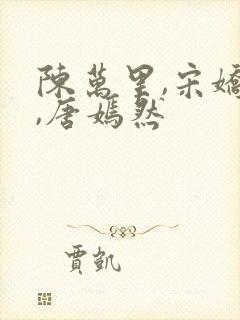 陳萬里,宋嬌
,唐嫣然
賈凱